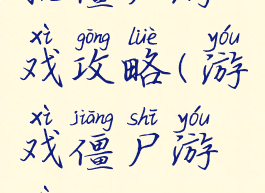 xì gōng lüè yóu
戏攻略(游
xì jiāng shī yóu
戏僵尸游